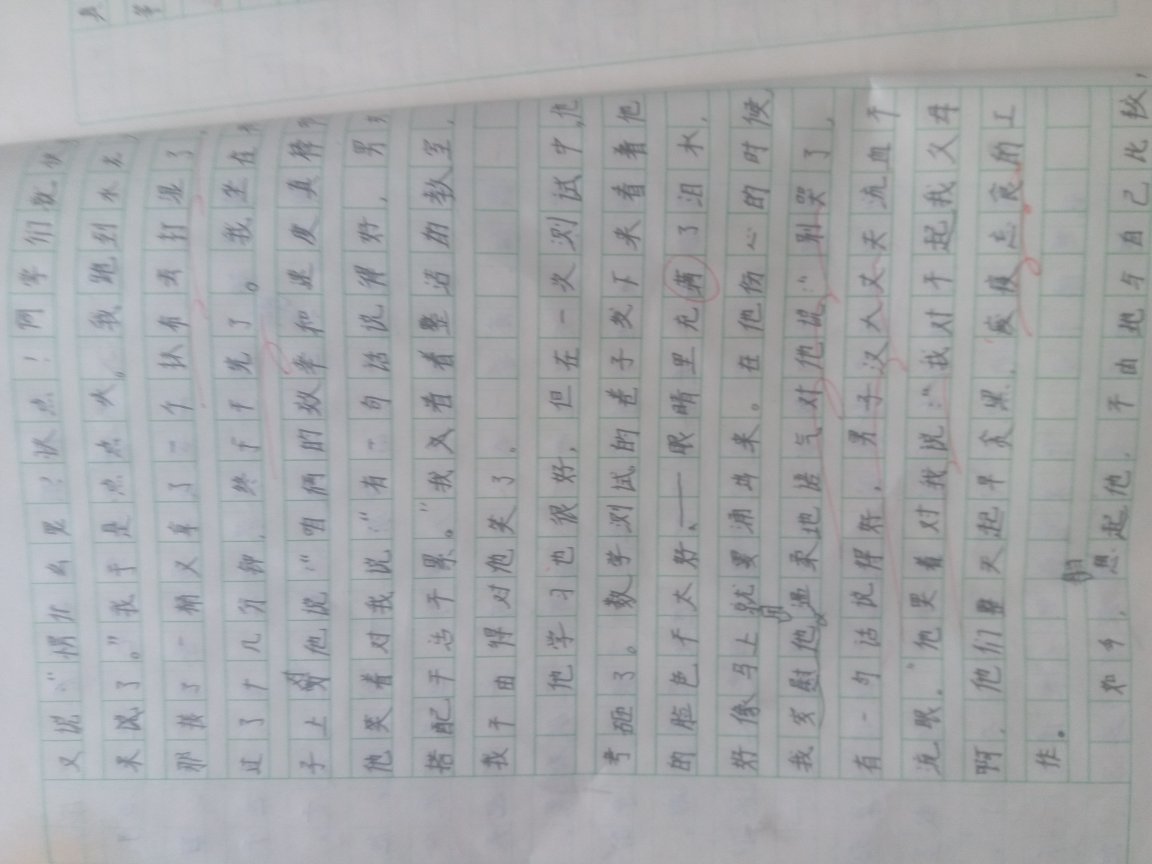 又说："惧什么累？快点！同学们
来说了。"我于是点点火。我跑到水
那接了一桶又拿了一个抹布去打湿了
过了十几分钟，终于干完了。我坐在
子上对他说："咱俩的效率和速度真棒
他笑着对我说："有一句话说得好，男
搭配干活不累。"我又看着整洁的教室，
我不由得对他笑了。
他学习也很好，但在一次测试中，他
考砸了。数学测试的卷子发下来看着他
的脸色不太好，——眼睛里充满了泪水，
好像马上就要涌出来。在他伤心的时候
我安慰他用温柔地语气对他说："别哭了，
有一句话说得好，男子汉大丈夫流血不
流眼。"他哭着对我说："我对不起我父母
啊，他们整天起早贪黑，
作。
如今，想起他，不由地与自己比较，